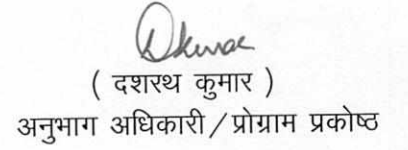 Dkumar
( दशरथ कुमार )
अनुभाग अधिकारी / प्रोग्राम प्रकोष्ठ